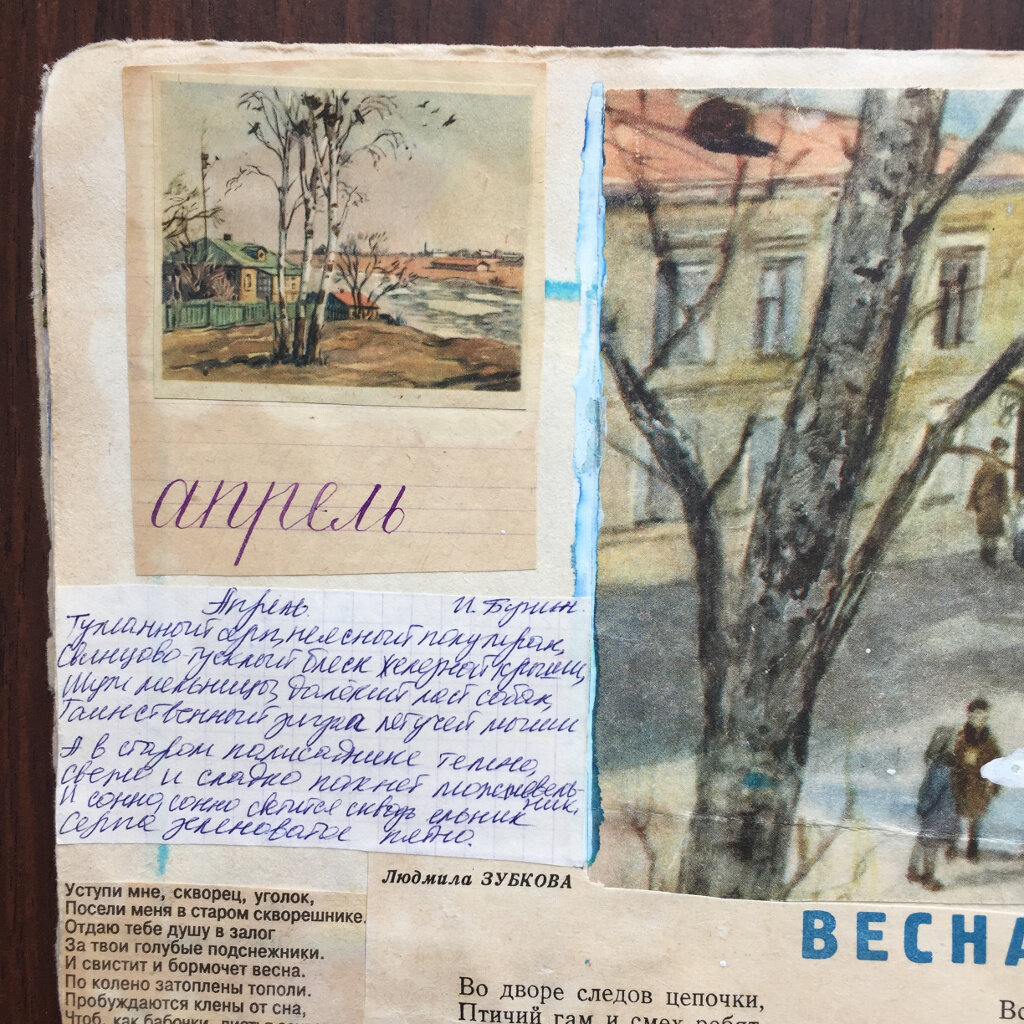 апрель
Апрель И. Бунин.
Туманный серп, неясный полумрак,
Свинцово-тусклый блеск железной крыши,
Шум мельницы, далёкий лай собак,
Таинственный зигзаг летучей мыши
А в старом палисаднике темно,
Свежо и сладко пахнет можжевель-
ник,
И сонно, сонно светится сквозь ельник
Серпа зеленоватое пятно.
Уступи мне, скворец, уголок,
Посели меня в старом скворешнике.
Отдаю тебе душу в залог
За твои голубые подснежники.
И свистит и бормочет весна.
По колено затоплены тополи.
Пробуждаются клены от сна,
Чтоб, как бабочки, листья
Людмила ЗУБКОВА
ВЕСНА
Во дворе следов цепочки,
Птичий гам и смех ребят
Вс